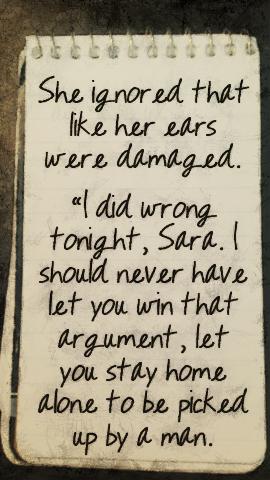 She ignored that
like her ears
were damaged.
“I did wrong
tonight, Sara. I
should never have
let you win that
argument, let
you stay home
alone to be picked
up by a man.